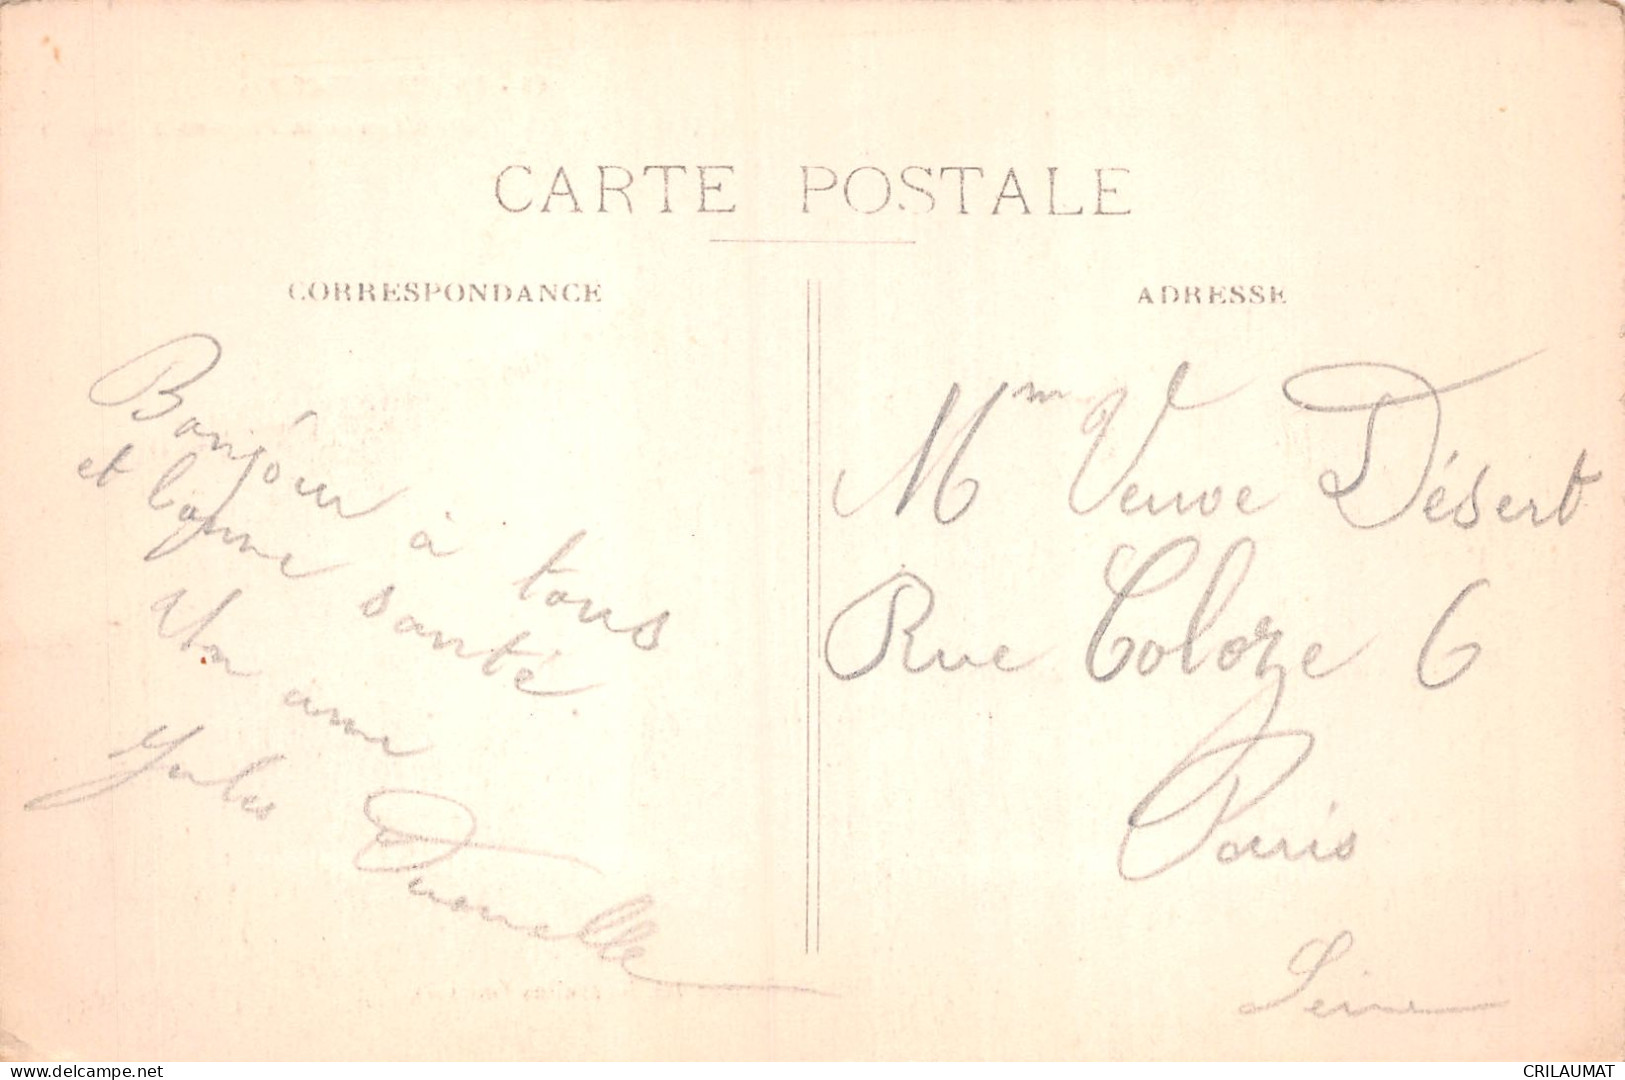 CARTE POSTALE
CORRESPONDANCE
Bonjour à tous
et bonne santé.
Jules
ADRESSE
Mm Veuve Désert
Rue Coloze 6
Paris
Seine
www.delcampe.net
CRILAUMAT